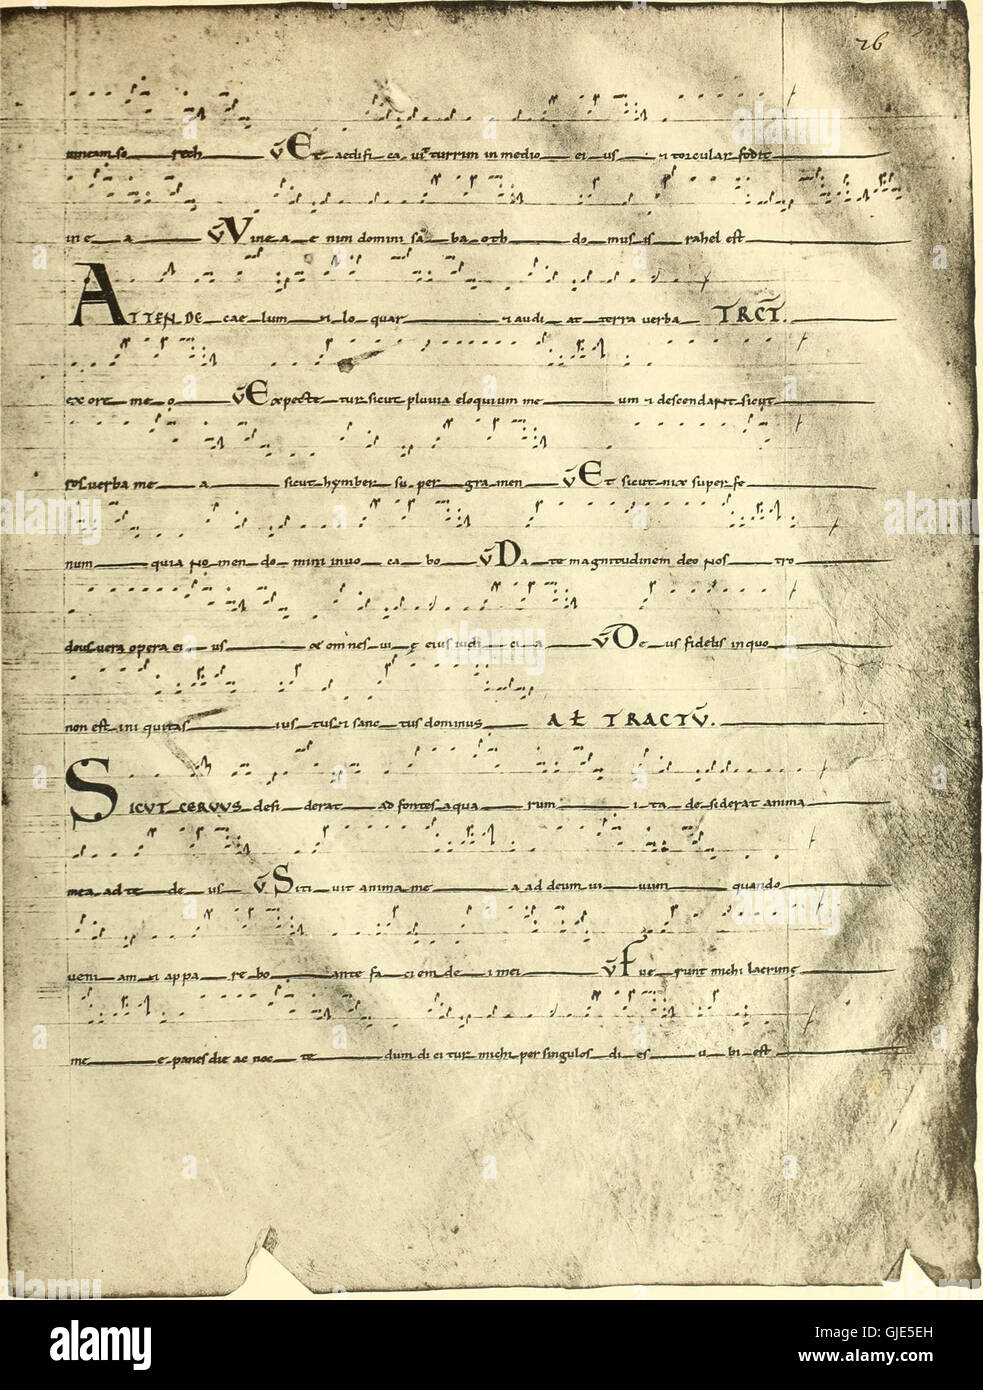 26
vineam so rech V Et aedifi ca vit turrim in medio ei us & torcular fodit
in e a V Vine a e nim domini sa ba oth do mus is rahel est
ATTENDE cae lum & lo quar & audi at terra verba TRCT.
ex ore me o V Expecte tur sicut pluvia eloquium me um & descendant sicut
ros verba me a sicut hymber su per gra men V Et sicut nix super fe
num quia no men do mini invo ca bo V Da te magnitudinem deo nos tro
deus vera opera ei us & omnes vi ę eius iudi ci a V De us fidelis in quo
non est ini quitas ius tus & sanc tus dominus TRACTV.
SICUT CERVUS desi derat ad fontes aqua rum i ta de siderat anima
mea ad te de us V Siti vit anima me a ad deum vi vum quando
veni am & appa re bo ante fa ci em de i mei V Fue runt michi lacrimę
me e panes die ac noc te dum di ci tur michi per singulos di es u bi est
alamy
Image ID: GJE5EH
www.alamy.com